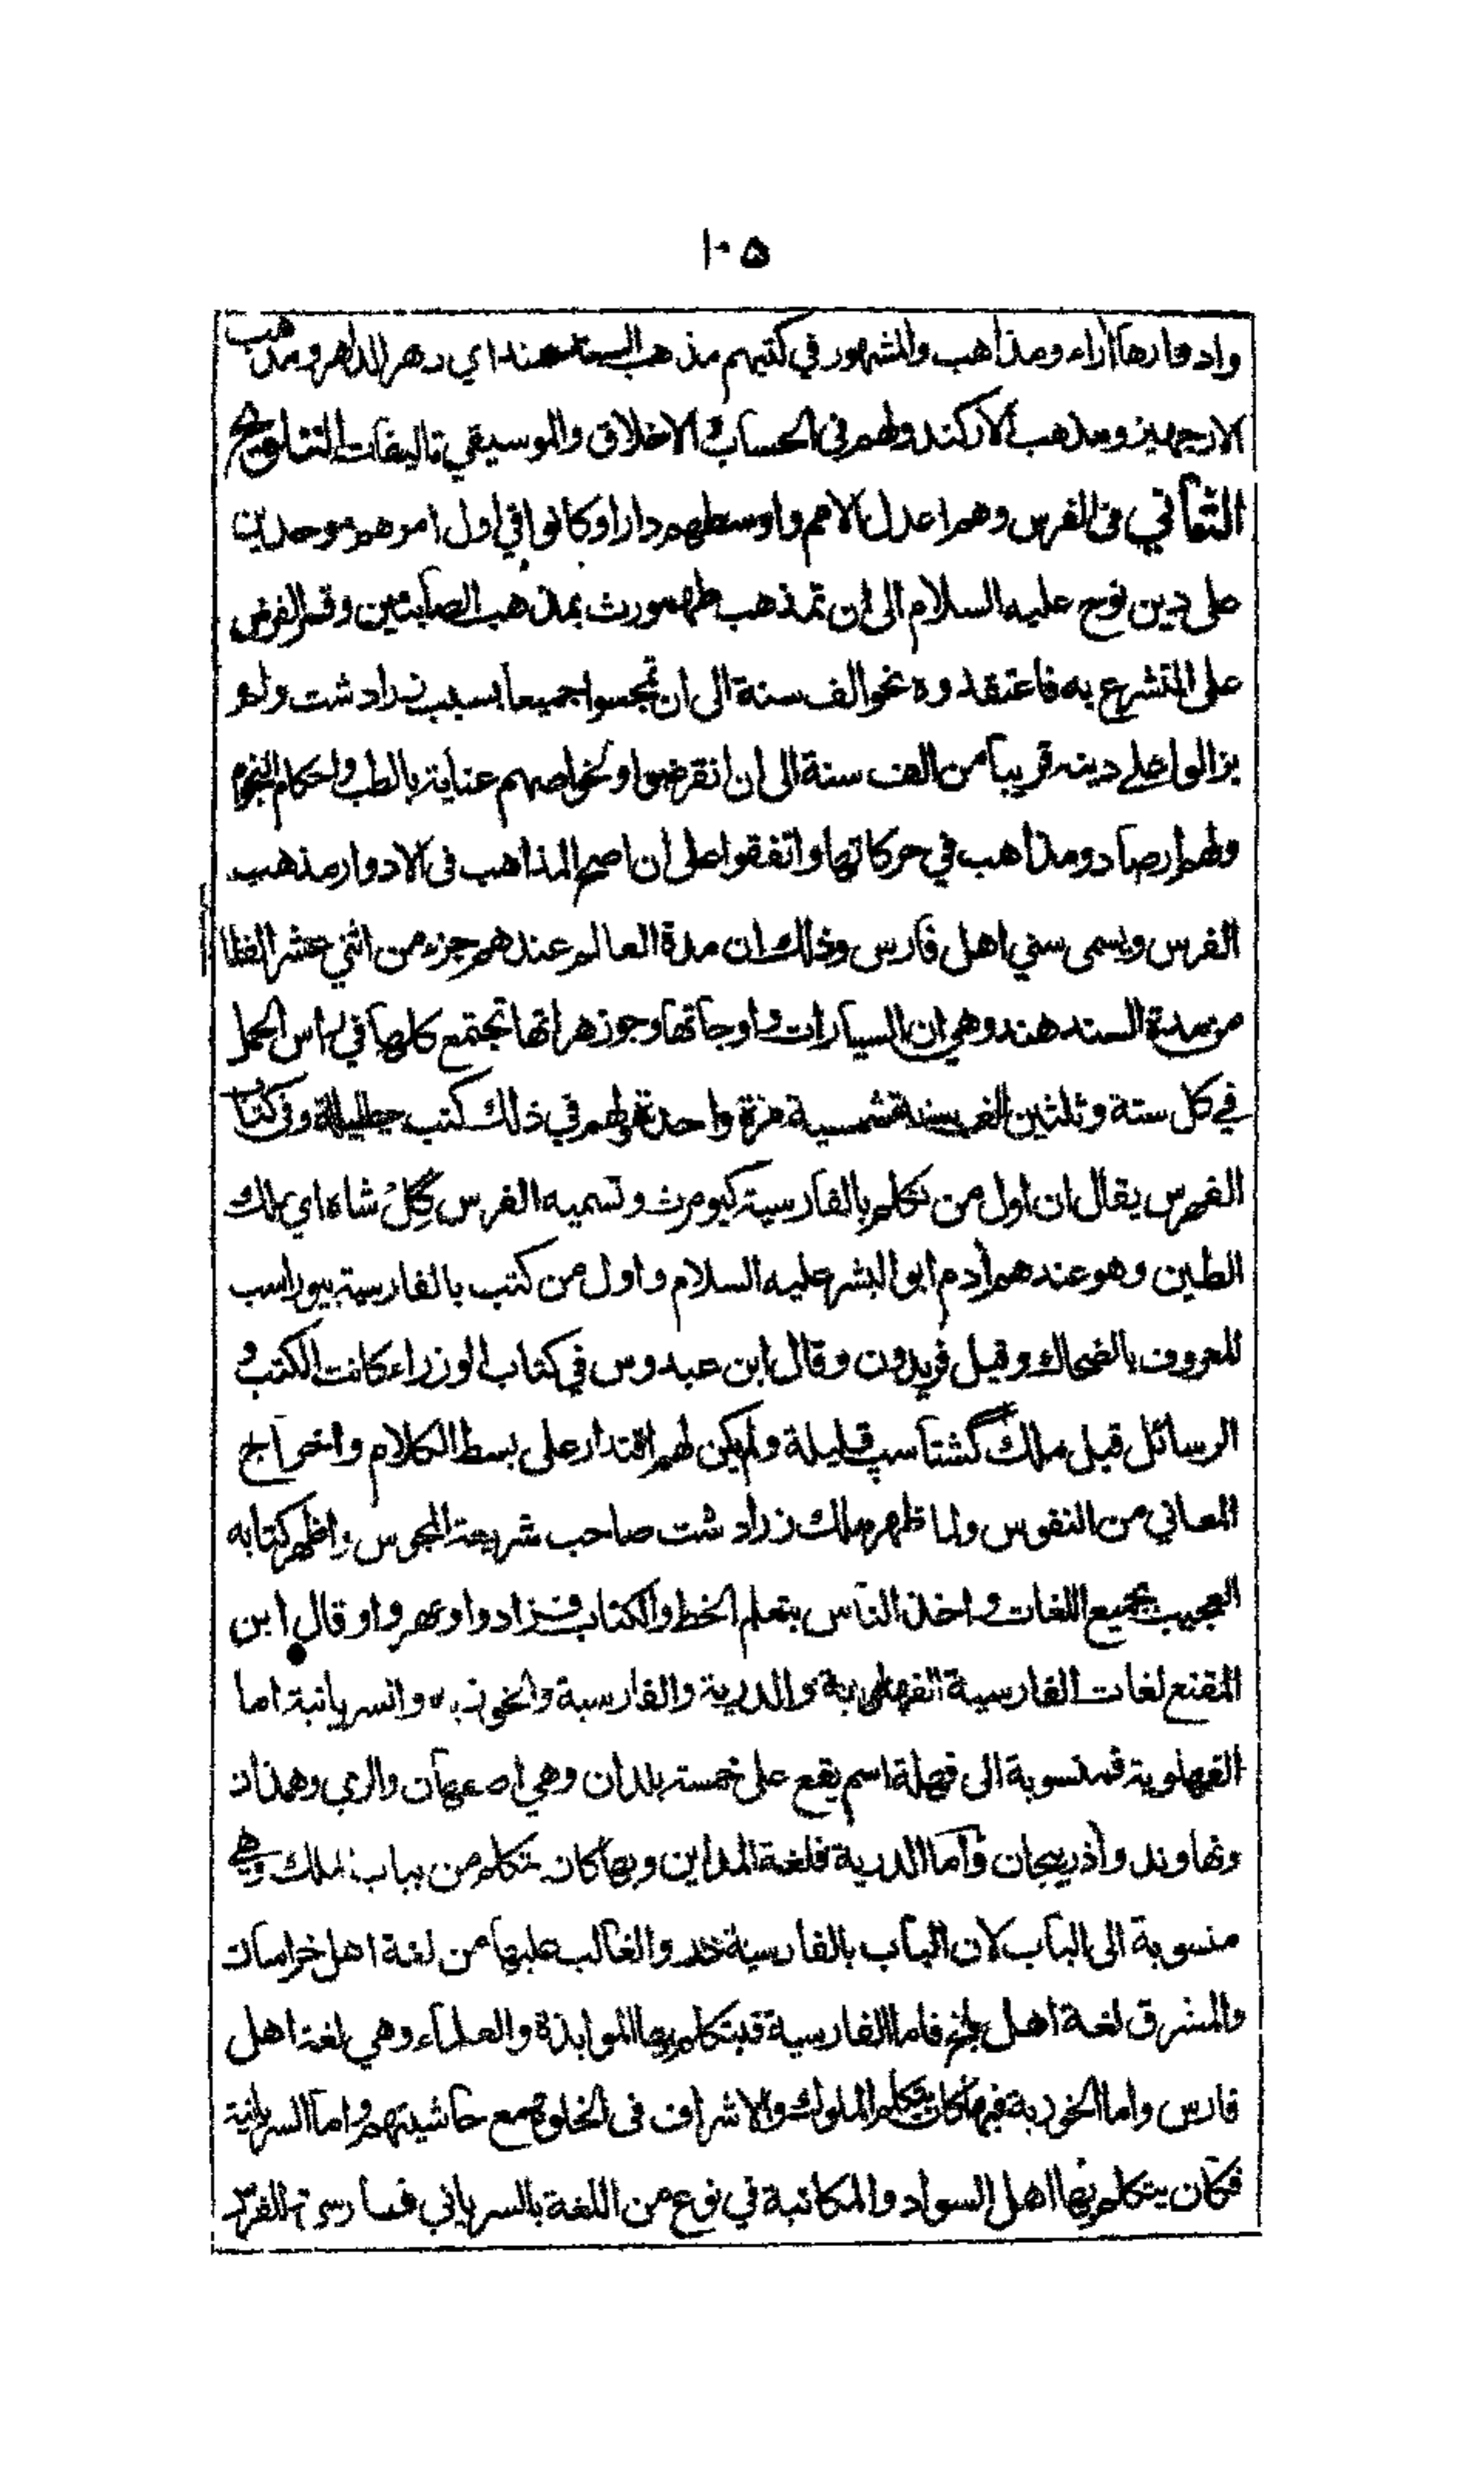 ١٠٥
وادوارها آراء ومذاهب والمشهور في كتبهم مذهب السند هند اي دهر الداهر ومذهب
الارجهيز ومذهب الاركند ولهم في الحساب و الاخلاق والموسيقي تاليفات التلويح
الثاني في الفرس وهم اعدل الامم واوسطهم دارا وكانوا في اول امرهم موحدين
على دين نوح عليه السلام الى ان تمذهب طهمورث بمذهب الصابئين وقسر الفرس
على التشرع به فاعتقدوه نحو الف سنة الى ان تمجسوا جميعا بسبب زرادشت ولم
يزالوا على دينه قريباً من الف سنة الى ان انقرضوا ولخواصهم عناية بالطب واحكام النجوم
ولهم ارصاد ومذاهب في حركاتها واتفقوا على ان اصح المذاهب في الادوار مذهب
الفرس ويسمى سني اهل فارس وذلك ان مدة العالم عندهم جزء من اثني عشر الفا
من مدة السند هند وهي ان السيارات واوجاتها وجوزهراتها تجتمع كلها في راس الحمل
في كل ستة وثلثين الف سنة شمسية مرة واحدة ولهم في ذلك كتب جليلة وفي كتاب
الفهرس يقال ان اول من تكلم بالفارسية كيومرث وتسميه الفرس گِل شاه اي ملك
الطين وهو عندهم آدم ابو البشر عليه السلام واول من كتب بالفارسية بيوراسب
المعروف بالضحاك وقيل فريدون وقال ابن عبدوس في كتاب الوزراء كانت الكتب و
الرسائل قبل ملك گشتاسپ قليلة ولم يكن لهم اقتدار على بسط الكلام واخراج
المعاني من النفوس ولما ظهر ملك زرادشت صاحب شريعة المجوس واظهر كتابه
العجيب بجميع اللغات و اخذ الناس بتعلم الخط والكتاب فزادوا ومهروا وقال ابن
المقفع لغات الفارسية الفهلوية والدرية والفارسية والخوزية والسريانية اما
الفهلوية فمنسوبة الى فهلة اسم يقع على خمسة بلدان وهي اصفهان والري وهمذان
ونهاوند وآذربيجان واما الدرية فلغة المداين وبها كان يتكلم من بباب الملك وهي
منسوبة الى الباب لان الباب بالفارسية در والغالب عليها من لغة اهل خراسان
والمشرق لغة اهل بلخ فاما الفارسية فيتكلم بها الموابذة والعلماء وهي لغة اهل
فارس واما الخوزية فبها كان يتكلم الملوك والاشراف في الخلوة مع حاشيتهم واما السريانية
فكان يتكلم بها اهل السواد والمكاتبة في نوع من اللغة بالسرياني